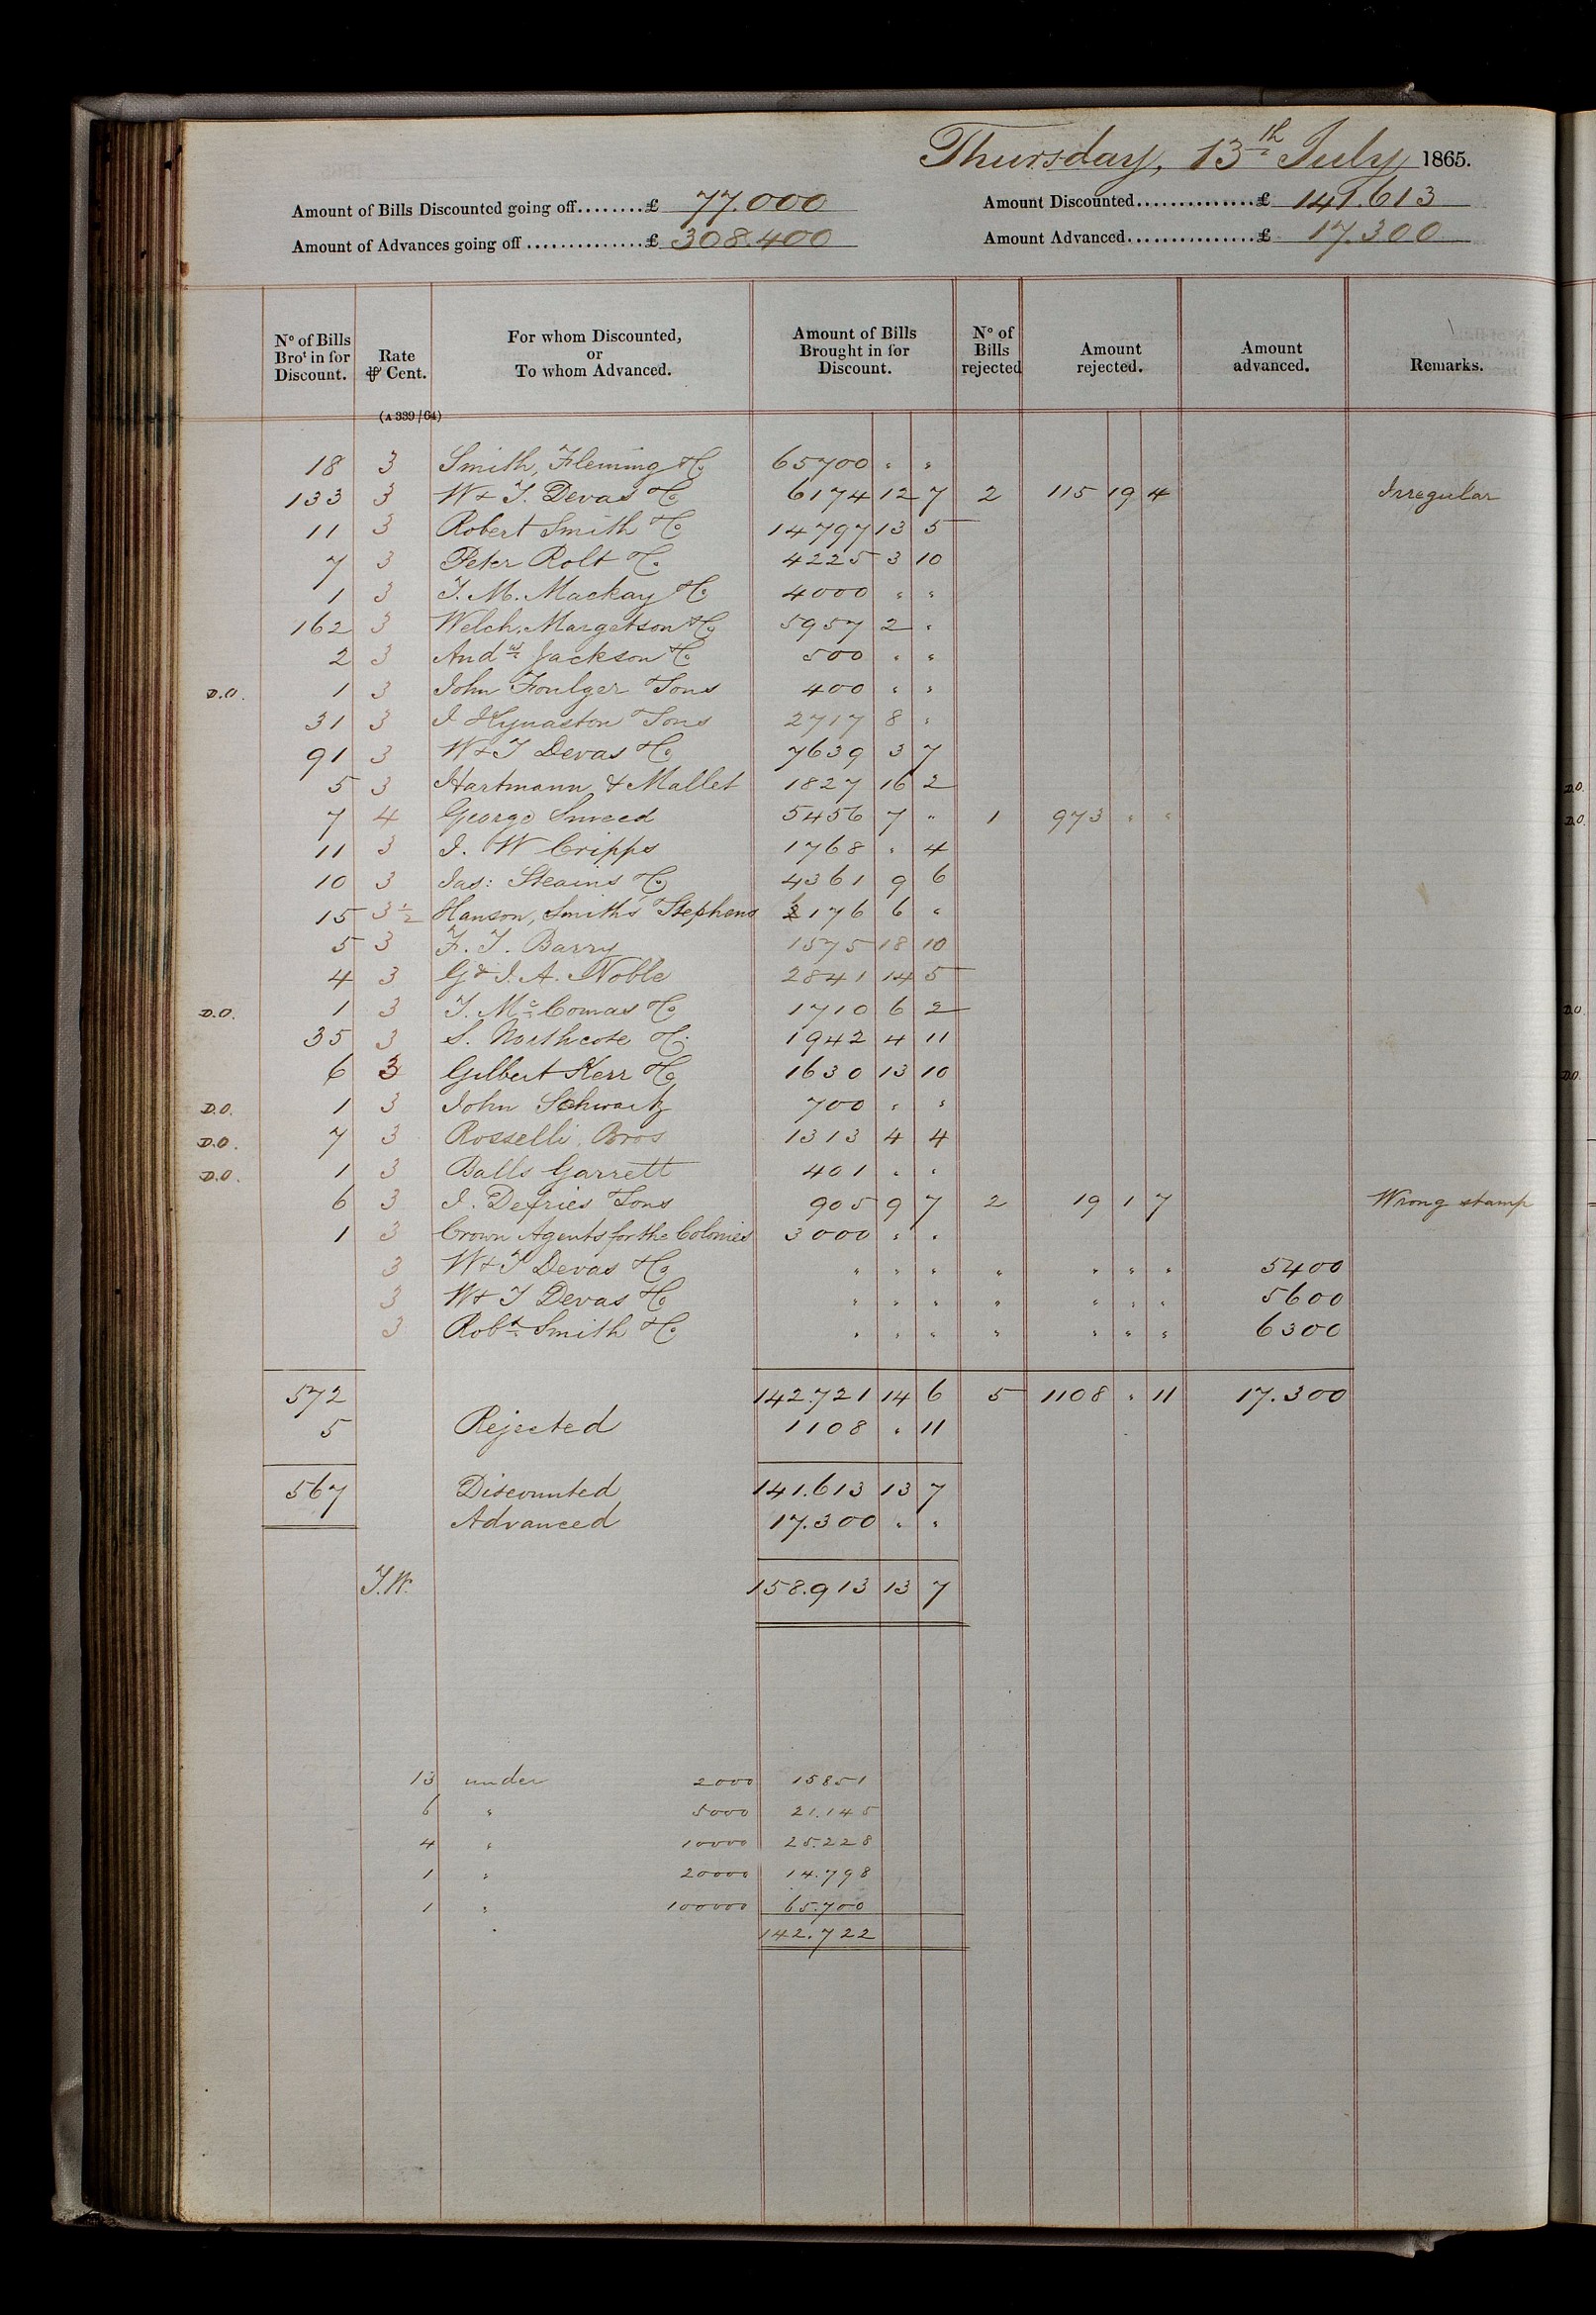 Thursday, 13th July 1865.
Amount of Bills Discounted going off........£ 77.000 Amount Discounted...............£ 141.613
Amount of Advances going off...............£ 308.400 Amount Advanced.................£ 17.300
No of Bills Brot in for Discount. Rate ⅌ Cent. For whom Discounted, or To whom Advanced. Amount of Bills Brought in for Discount. No of Bills rejected Amount rejected. Amount advanced. Remarks.
(A 339/64)
18 3 Smith, Fleming & Co 65700 " "
133 3 W & T. Devas & Co 6174 12 7 2 115 19 4 Irregular
11 3 Robert Smith & Co 14797 13 5
7 3 Peter Rolt & Co 4225 3 10
1 3 T. M. Mackay & Co 4000 " "
162 3 Welch, Margetson & Co 5957 2 "
2 3 Andw Jackson & Co 500 " "
D.O. 1 3 John Foulger & Sons 400 " "
31 3 J Kynaston & Sons 2717 8 "
91 3 W & T Devas & Co 7639 3 7
5 3 Hartmann & Mallet 1827 16 2
7 4 George Smeed 5456 7 " 1 973 " "
11 3 J. W Cripps 1768 " 4
10 3 Jas: Steains & Co 4361 9 6
15 3½ Hanson, Smiths & Stephens 1176 6 "
5 3 F. T. Barry 1575 18 10
4 3 G & J. A. Noble 2841 14 5
D.O. 1 3 T. Mc Comas & Co 1710 6 2
35 3 S. Northcote & Co 1942 4 11
6 3 Gilbert Kerr & Co 1630 13 10
D.O. 1 3 John Schwartz 700 " "
D.O. 7 3 Rosselli, Bros 1313 4 4
D.O. 1 3 Balls Garrett 401 " "
6 3 J. Defries & Sons 905 9 7 2 19 1 7 Wrong stamp
1 3 Crown Agents for the Colonies 3000 " "
3 W & T Devas & Co " " " " " " " 5400
3 W & T Devas & Co " " " " " " " 5600
3 Robt Smith & Co " " " " " " " 6300
572 142.721 14 6 5 1108 " 11 17.300
5 Rejected 1108 " 11
567 Discounted 141.613 13 7
Advanced 17.300 " "
T.W. 158.913 13 7
13 under 2000 15851
6 " 5000 21.145
4 " 10000 25.228
1 " 20000 14.798
1 " 100000 65.700
142.722
D.O.
D.O.
D.O.
D.O.